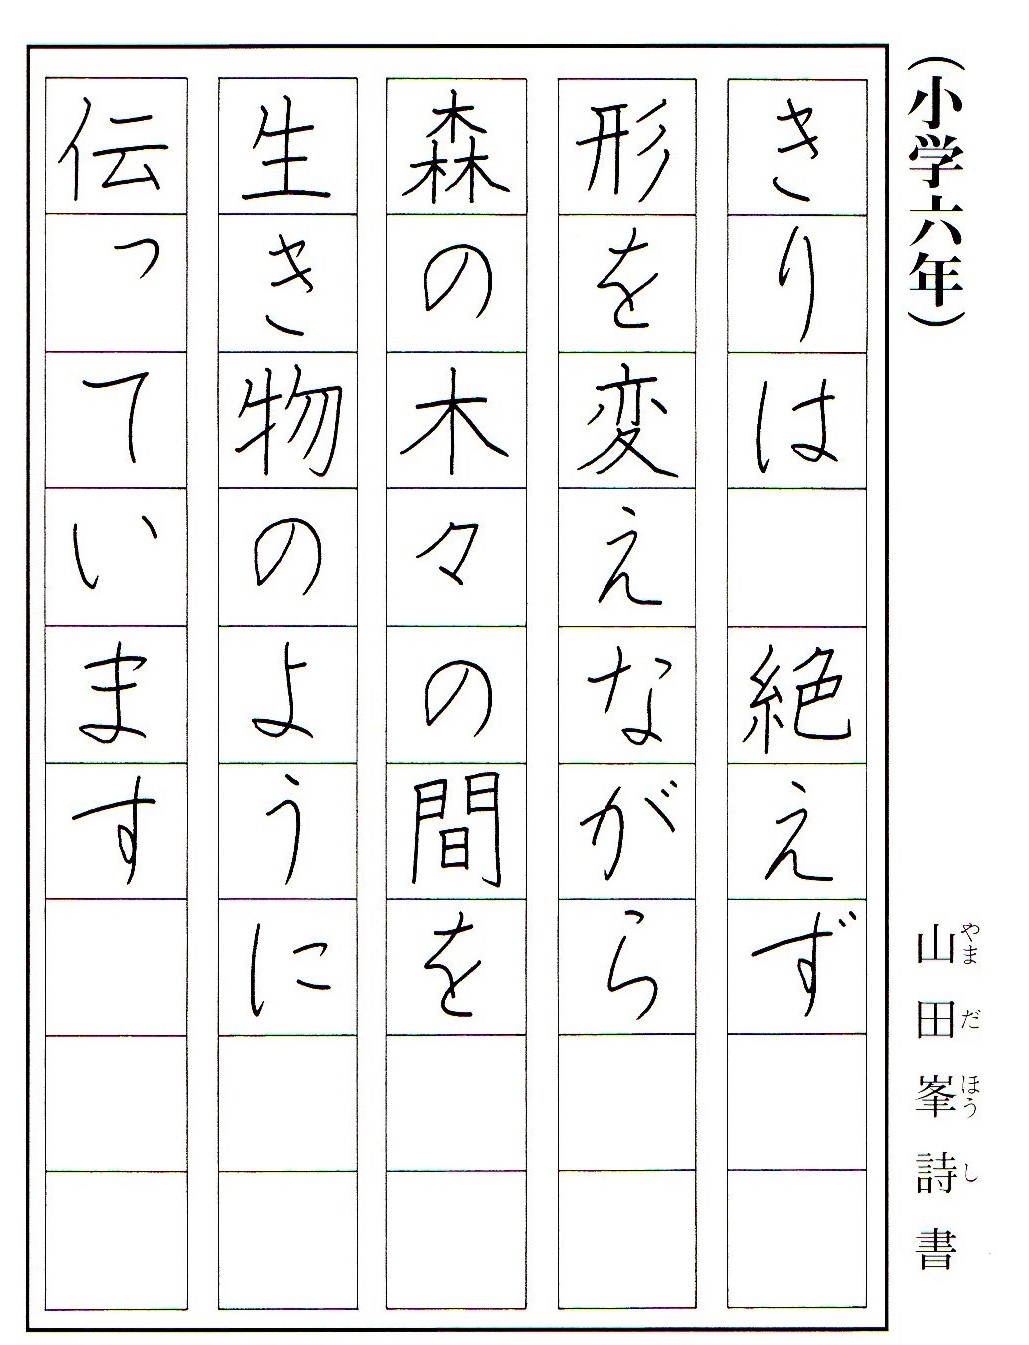 （小学六年）
山田峯詩書
やまだほうし
きりは　絶えず
形を変えながら
森の木々の間を
生き物のように
伝っています